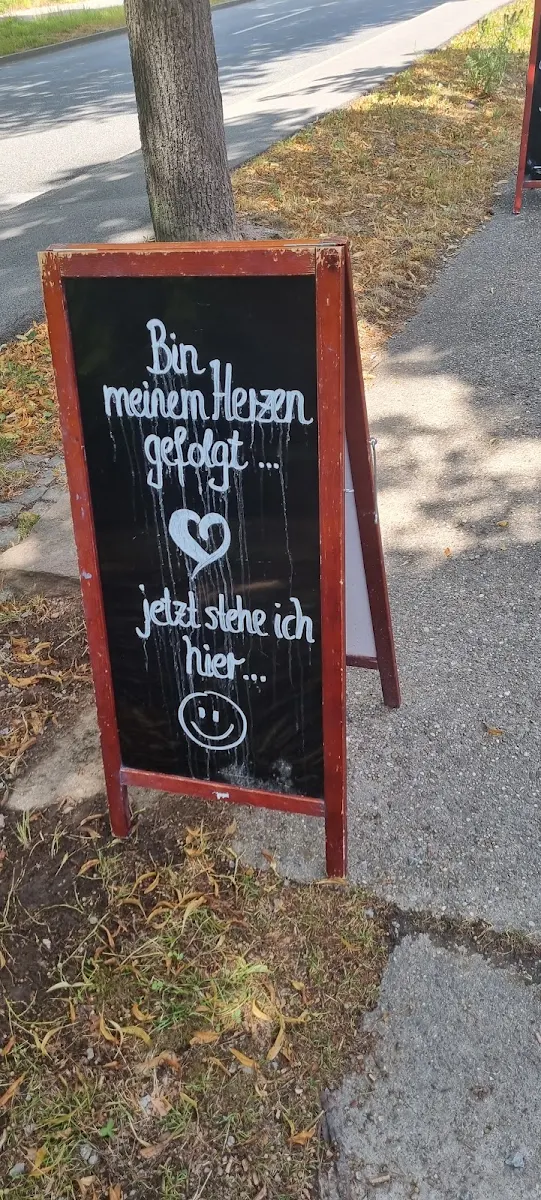 Bin
meinem Herzen
gefolgt ...
jetzt stehe ich
hier...